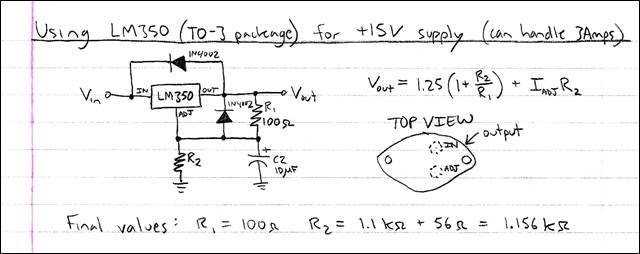 Using LM350 (TO-3 package) for +15V supply (can handle 3Amps)
1N4002
Vin IN LM350 OUT Vout
ADJ
1N4002
R1
100Ω
R2
+
C2
10μF
Vout = 1.25 (1 + R2/R1) + IADJ R2
TOP VIEW
output
IN
ADJ
Final values: R1 = 100Ω R2 = 1.1 kΩ + 56Ω = 1.156 kΩ